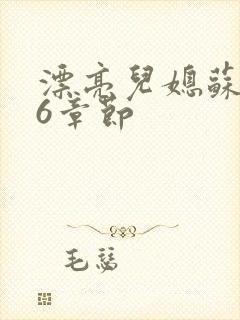 漂亮兒媳蘇
6章節
毛瑟